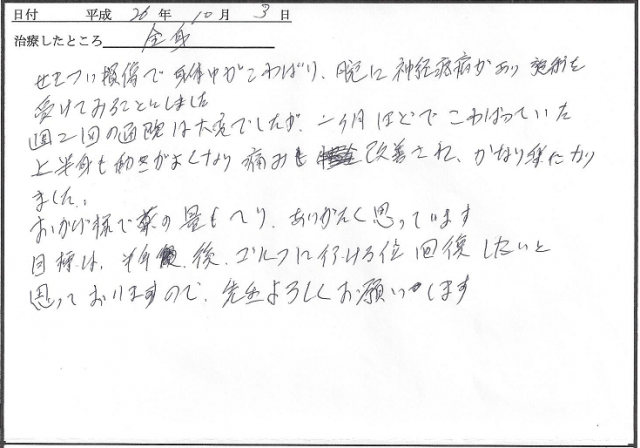 日付 平成 26 年 10 月 3 日
治療したところ 全身
せきつい損傷で身体中がこわばり、腕に神経疼痛があり施術を
受けてみることにしました
週二回の通院は大変でしたが、二ヶ月ほどでこわばっていた
上半身も動きがよくなり痛みも改善され、かなり楽になり
ました。
おかげ様で薬の量もへり、ありがたく思っています
目標は、半年後、ゴルフに行ける位回復したいと
思っておりますので、先生よろしくお願いします